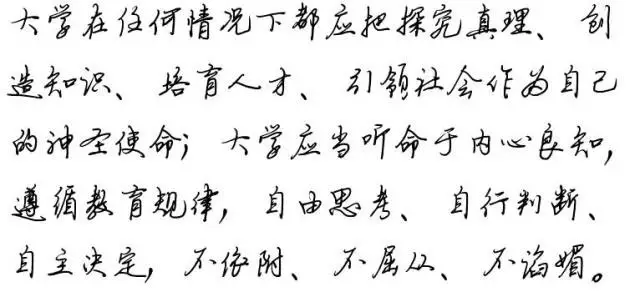 大学在任何情况下都应把探究真理、创
造知识、培育人才、引领社会作为自己
的神圣使命；大学应当听命于内心良知，
遵循教育规律，自由思考、自行判断、
自主决定，不依附、不屈从、不谄媚。